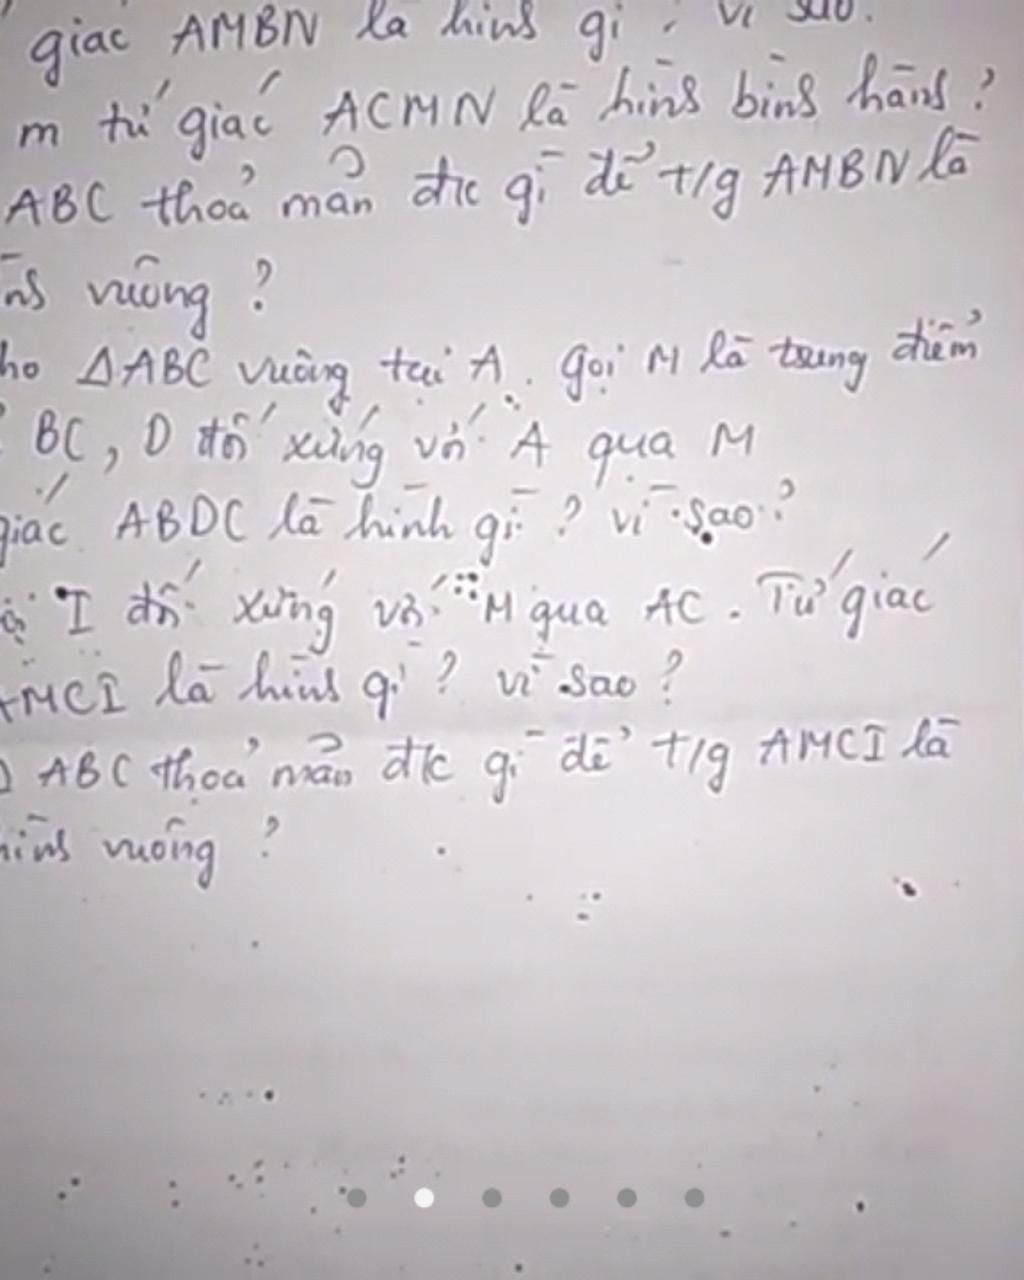 giác AMBN là hình gì? vì sao.
m tứ giác ACMN là hình bình hành?
ABC thoả mãn đk gì để t/g AMBN là
vuông?
ho ΔABC vuông tại A. Gọi M là trung điểm
BC, D đối xứng với A qua M
giác ABDC là hình gì? vì sao?
I đối xứng với M qua AC. Tứ giác
AMCI là hình gì? vì sao?
ABC thoả mãn đk gì để t/g AMCI là
hình vuông?